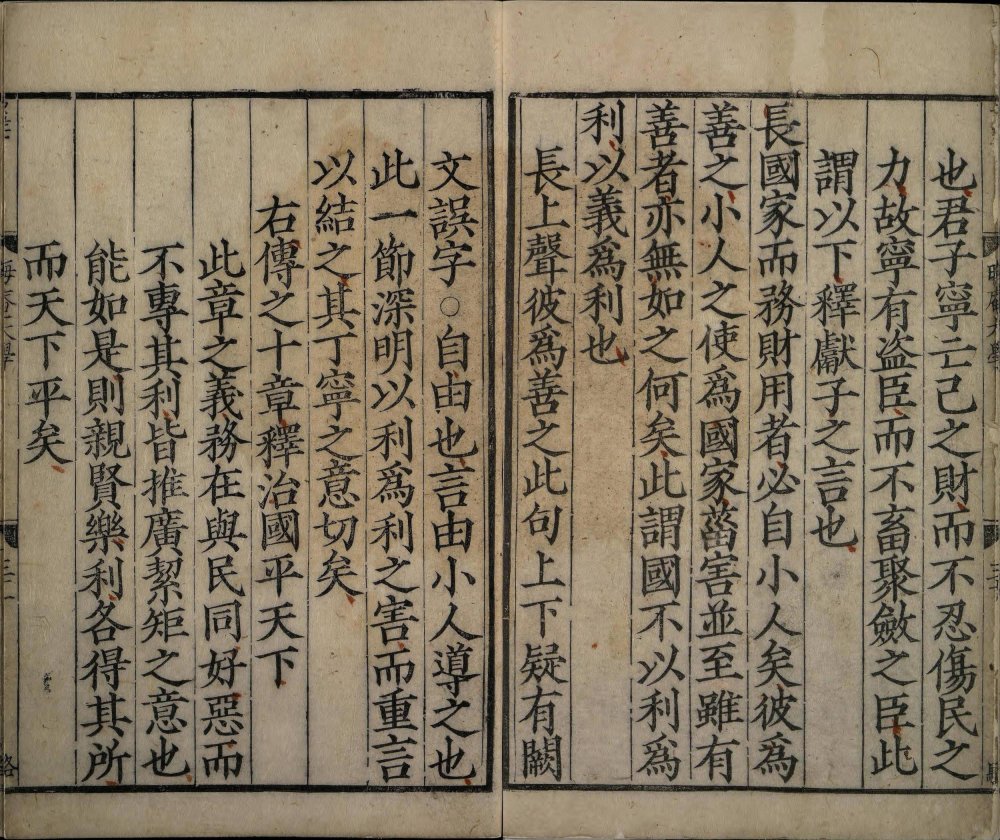 也君子寧亡己之財而不忍傷民之
力故寧有盗臣而不畜聚斂之臣此
謂以下釋獻子之言也
長國家而務財用者必自小人矣彼爲
善之小人之使爲國家菑害並至雖有
善者亦無如之何矣此謂國不以利爲
利以義爲利也
長上聲彼爲善之此句上下疑有闕
文誤字○自由也言由小人導之也
此一節深明以利爲利之害而重言
以結之其丁寧之意切矣
右傳之十章釋治國平天下
此章之義務在與民同好惡而
不專其利皆推廣絜矩之意也
能如是則親賢樂利各得其所
而天下平矣